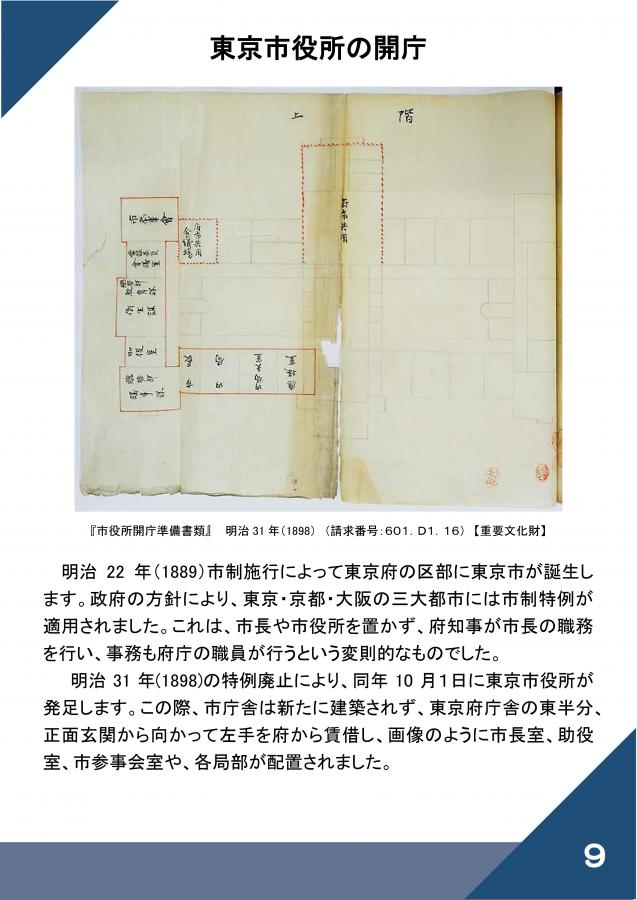 東京市役所の開庁
上　階
府市共用
市参事會
府市共用
會議場
『市役所開庁準備書類』　明治31年（1898）（請求番号：601．D1．16）【重要文化財】
明治 22 年（1889）市制施行によって東京府の区部に東京市が誕生し
ます。政府の方針により、東京・京都・大阪の三大都市には市制特例が
適用されました。これは、市長や市役所を置かず、府知事が市長の職務
を行い、事務も府庁の職員が行うという変則的なものでした。
明治 31 年(1898)の特例廃止により、同年 10 月１日に東京市役所が
発足します。この際、市庁舎は新たに建築されず、東京府庁舎の東半分、
正面玄関から向かって左手を府から賃借し、画像のように市長室、助役
室、市参事会室や、各局部が配置されました。
9